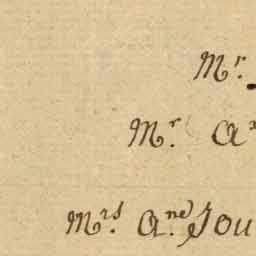 Mr.
Mr. A
Mrs. Ane Jou